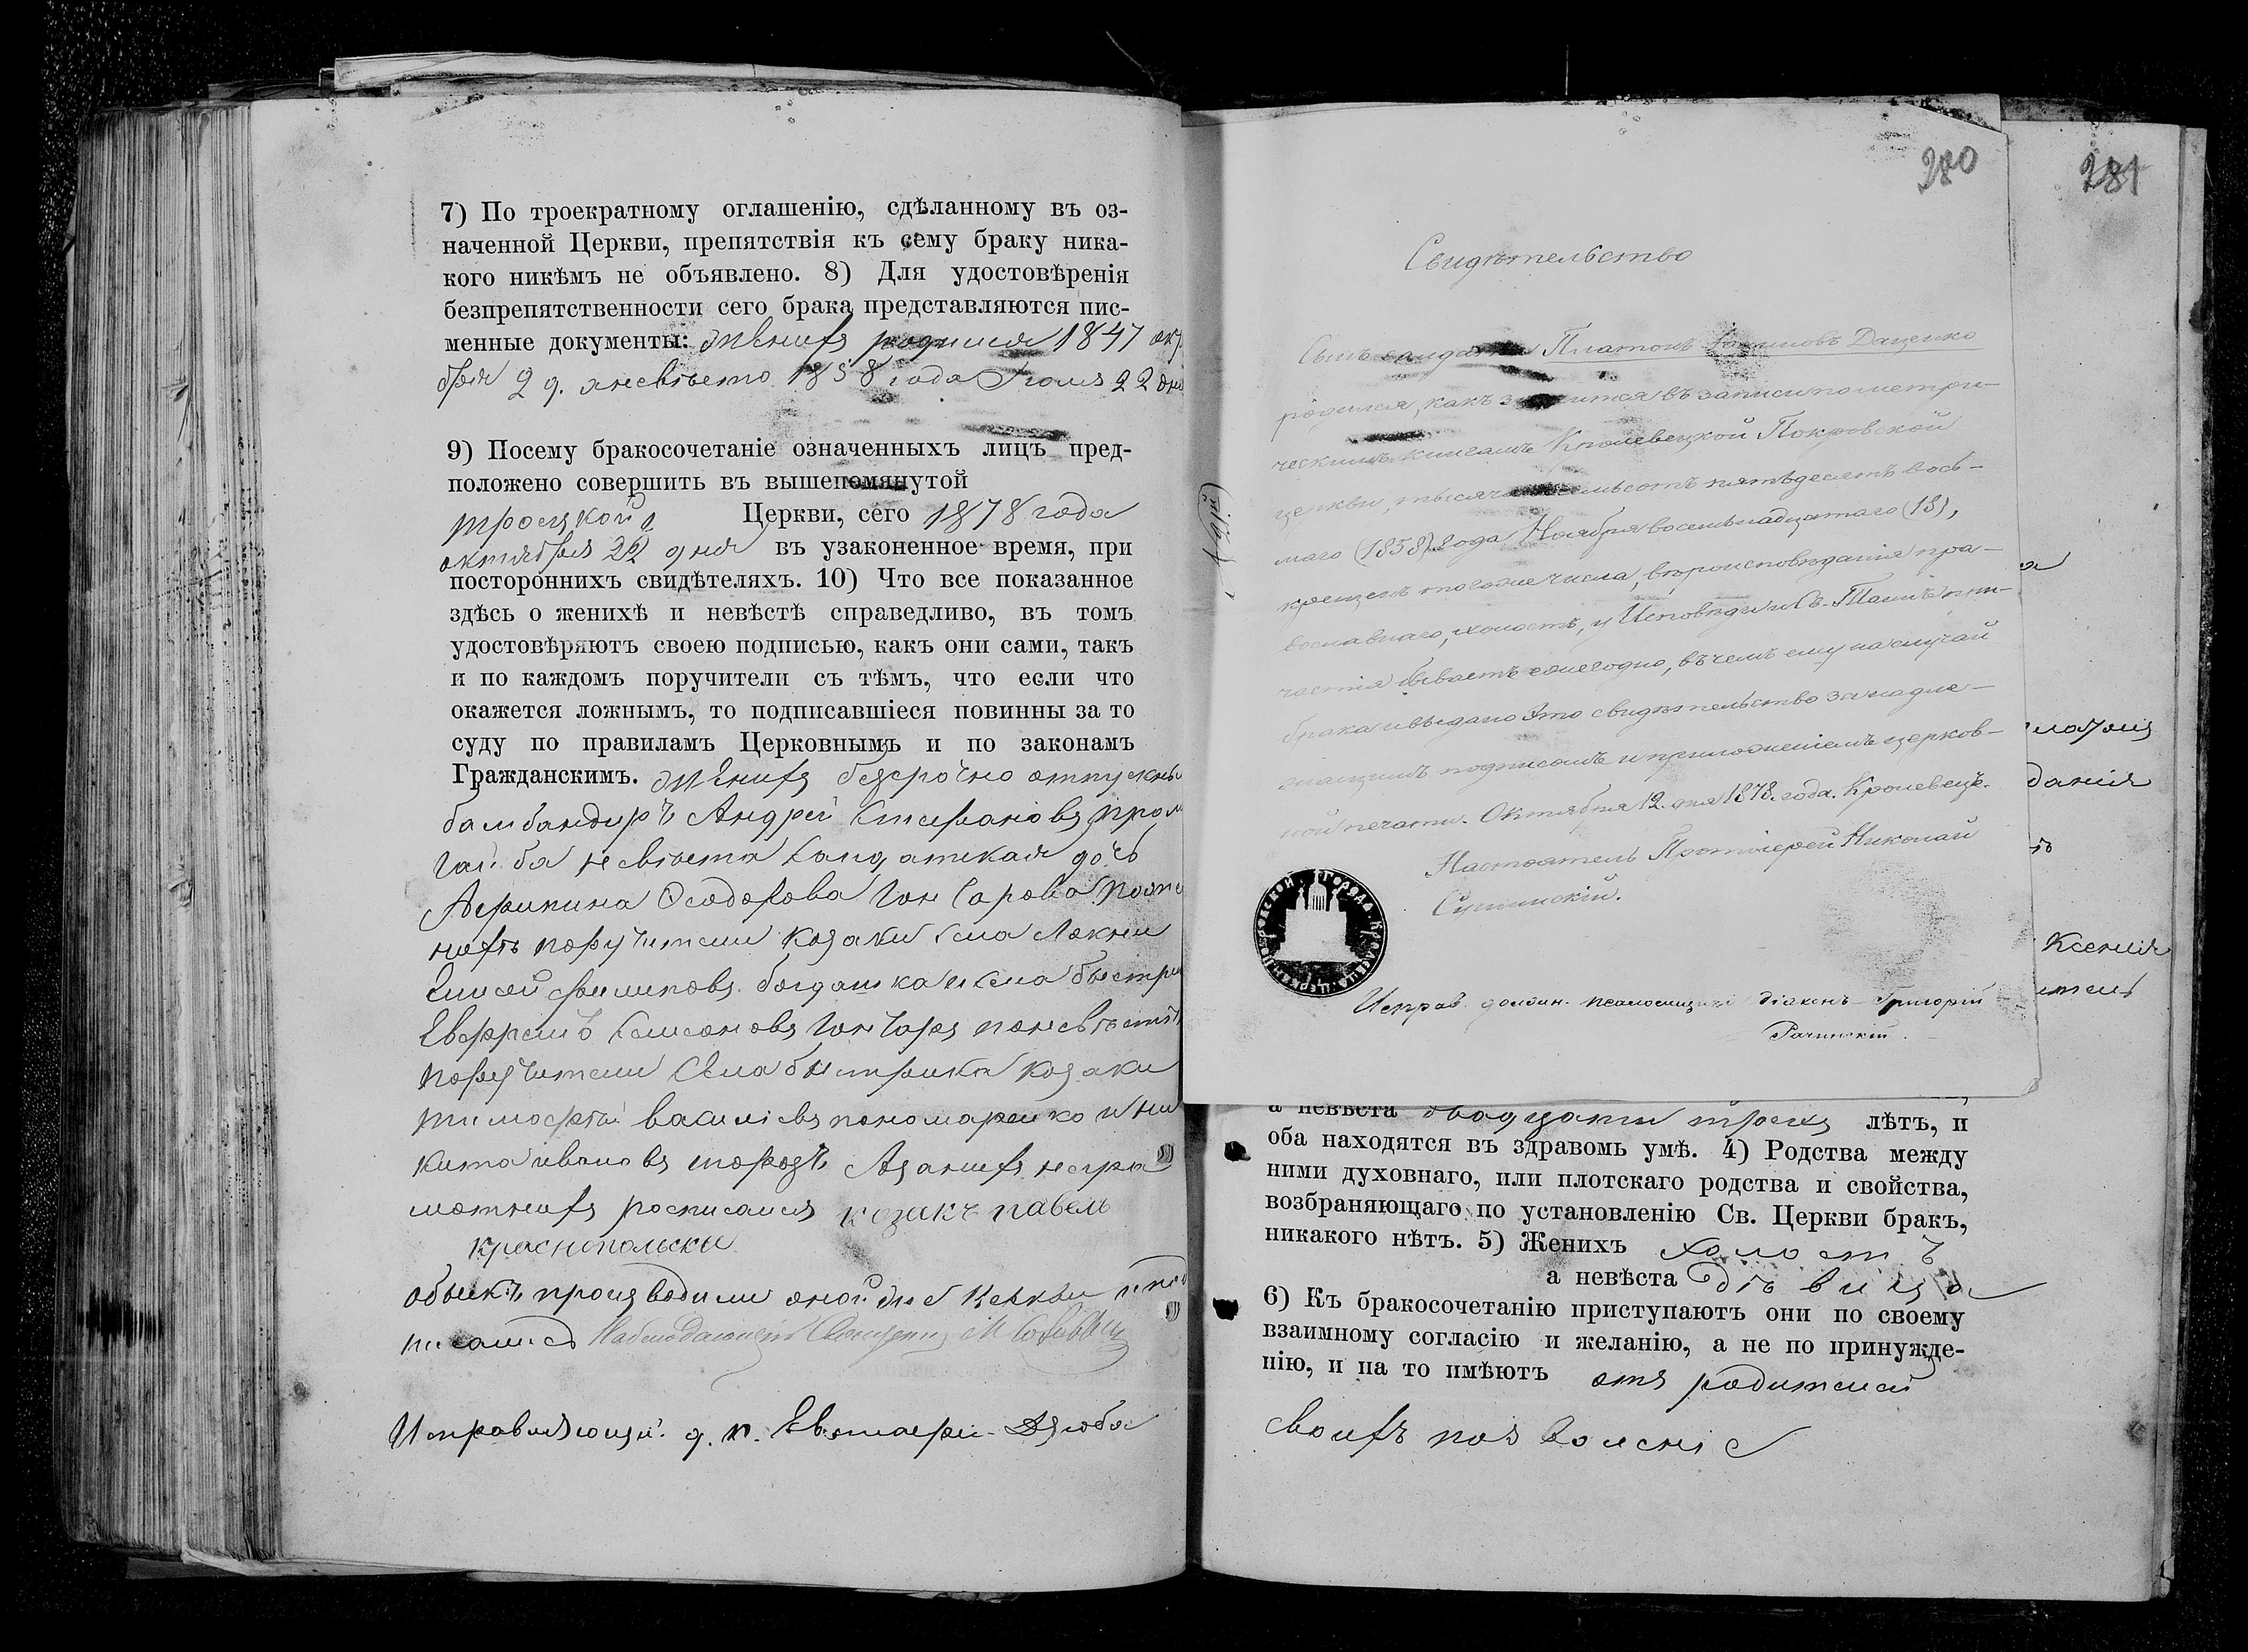 7) По троекратному оглашенію, сдѣланному въ оз-
наченной Церкви, препятствія къ сему браку ника-
кого никѣмъ не объявлено. 8) Для удостовѣренія
безпрепятственности сего брака представляются пис-
менные документы: женихъ родился 1847 октя
бря 2 д. аневѣста 1858 года Іюля 22 дня
9) Посему бракосочетаніе означенныхъ лицъ пред-
положено совершить въ вышепомянутой
троицкой Церкви, сего 1878 года
октября 22 дня въ узаконенное время, при
постороннихъ свидѣтеляхъ. 10) Что все показанное
здѣсь о женихѣ и невѣстѣ справедливо, въ томъ
удостовѣряютъ своею подписью, какъ они сами, такъ
и по каждомъ поручители съ тѣмъ, что если что
окажется ложнымъ, то подписавшіеся повинны за то
суду по правиламъ Церковнымъ и по законамъ
Гражданскимъ. женихъ безсрочно отпускны
бамбандиръ Андрей Стефановъ
невѣста Салдатская дочь
Агрипина Феодорова Гончарова
нихъ поручители козаки села Локни
Елисей Филиповъ богдашка исела быстри
Евфремъ Самсоновъ Гончаръ поневѣстѣ
поручители Села быстрика козаки
тимофѣй василіевъ пономаренко и ни
кита ивановъ морозъ Азанихъ негра
мотнихъ росписался козакъ павелъ
краснопольски
обыскъ производили оной же Церкви
писались Наблюдающій Священикъ М
Исправляющій д. п. Евстафій Дзюба
280
Свидѣтельство
Сынъ солдатки Платонъ Даценко
родился, какъ значится въ записи по метри-
ческимъ книгамъ Кролевецкой Покровской
церкви, тысяча восемьсотъ пятьдесятъ вось-
маго (1858) года Ноября восемнадцатаго (18),
крещенъ того же числа, вѣроисповѣданія пра-
вославнаго, холостъ, у Исповѣди и Св. Таинъ при-
частія бываетъ ежегодно, въ чемъ ему на случай
брака и выдано это свидѣтельство за надле-
жащимъ подписомъ и приложеніемъ церков-
ной печати. Октября 12 дня 1878 года. Кролевецъ.
Настоятель Протоіерей Николай
Исправ. должн. псаломщика діаконъ Григорій
Рачинскій.
281
данія
Ксенія
а невѣста двадцати трехъ лѣтъ, и
оба находятся въ здравомъ умѣ. 4) Родства между
ними духовнаго, или плотскаго родства и свойства,
возбраняющаго по установленію Св. Церкви бракъ,
никакого нѣтъ. 5) Женихъ холостъ
а невѣста дѣвица
6) Къ бракосочетанію приступаютъ они по своему
взаимному согласію и желанію, а не по принужде-
нію, и на то имѣютъ отъ родителей
своихъ позволеніе